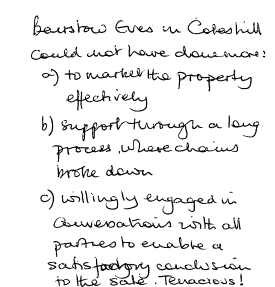 Bairstow Eves in Coleshill
could not have done more:
a) to market the property
effectively
b) support through a long
process, where chains
broke down
c) willingly engaged in
conversations with all
parties to enable a
satisfactory conclusion
to the sale. Tenacious!